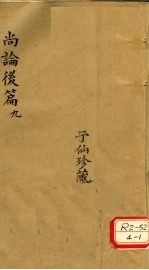 尚論後篇 九
子仙珍藏
R2-52
4-1